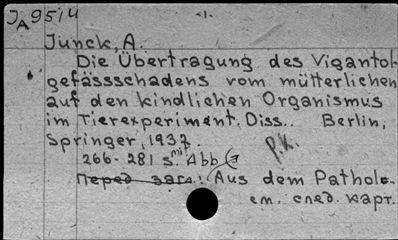 JA 95/4
-1.
Junck, A.
Die Übertragung des Vigantol-
gefässschadens vom mütterlichen
auf den kindlichen Organismus
im Tierexperiment. Diss.. Berlin,
Springer, 1937.
266-281 S. mit Abb
P.K.
Перед загл.: Aus dem Patholo-
см. след. карт.